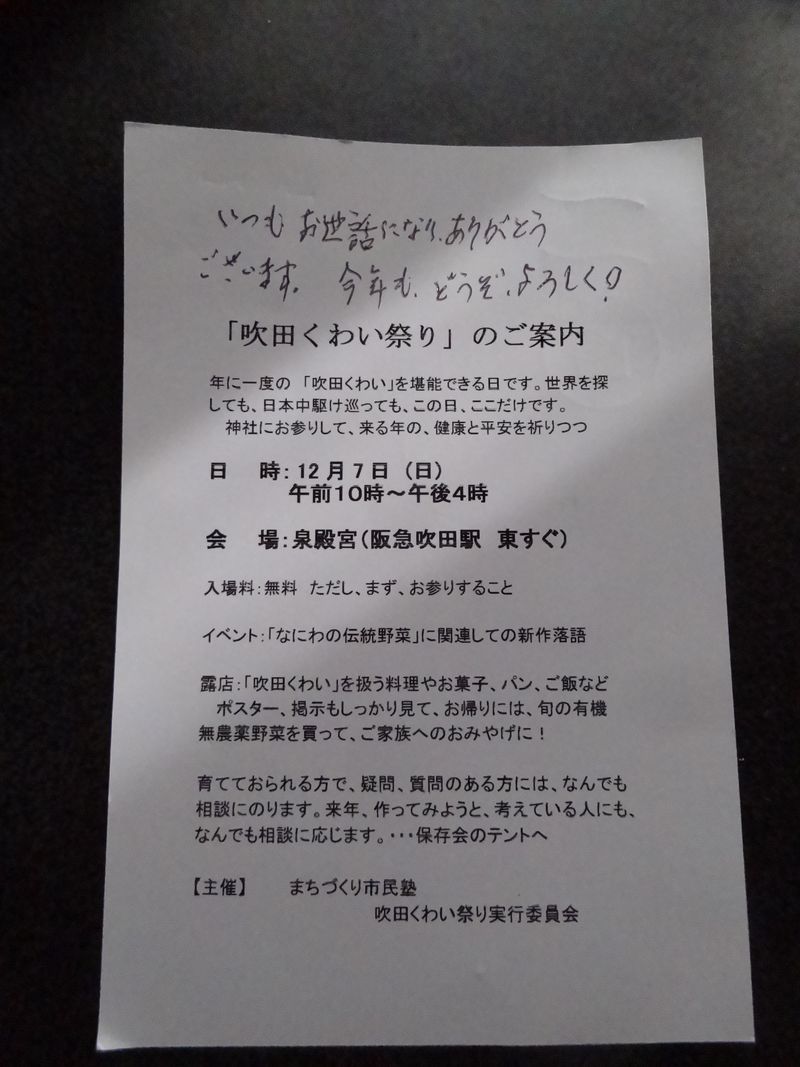 いつも お世話になり、ありがとう
ございます。 今年も、どうぞ、よろしく!
「吹田くわい祭り」のご案内
年に一度の 「吹田くわい」を堪能できる日です。世界を探
しても、日本中駆け巡っても、この日、ここだけです。
神社にお参りして、来る年の、健康と平安を祈りつつ
日 時：12月7日（日）
午前１０時～午後４時
会 場：泉殿宮（阪急吹田駅 東すぐ）
入場料：無料 ただし、まず、お参りすること
イベント：「なにわの伝統野菜」に関連しての新作落語
露店：「吹田くわい」を扱う料理やお菓子、パン、ご飯など
ポスター、掲示もしっかり見て、お帰りには、旬の有機
無農薬野菜を買って、ご家族へのおみやげに！
育てておられる方で、疑問、質問のある方には、なんでも
相談にのります。来年、作ってみようと、考えている人にも、
なんでも相談に応じます。・・・保存会のテントへ
【主催】 まちづくり市民塾
吹田くわい祭り実行委員会